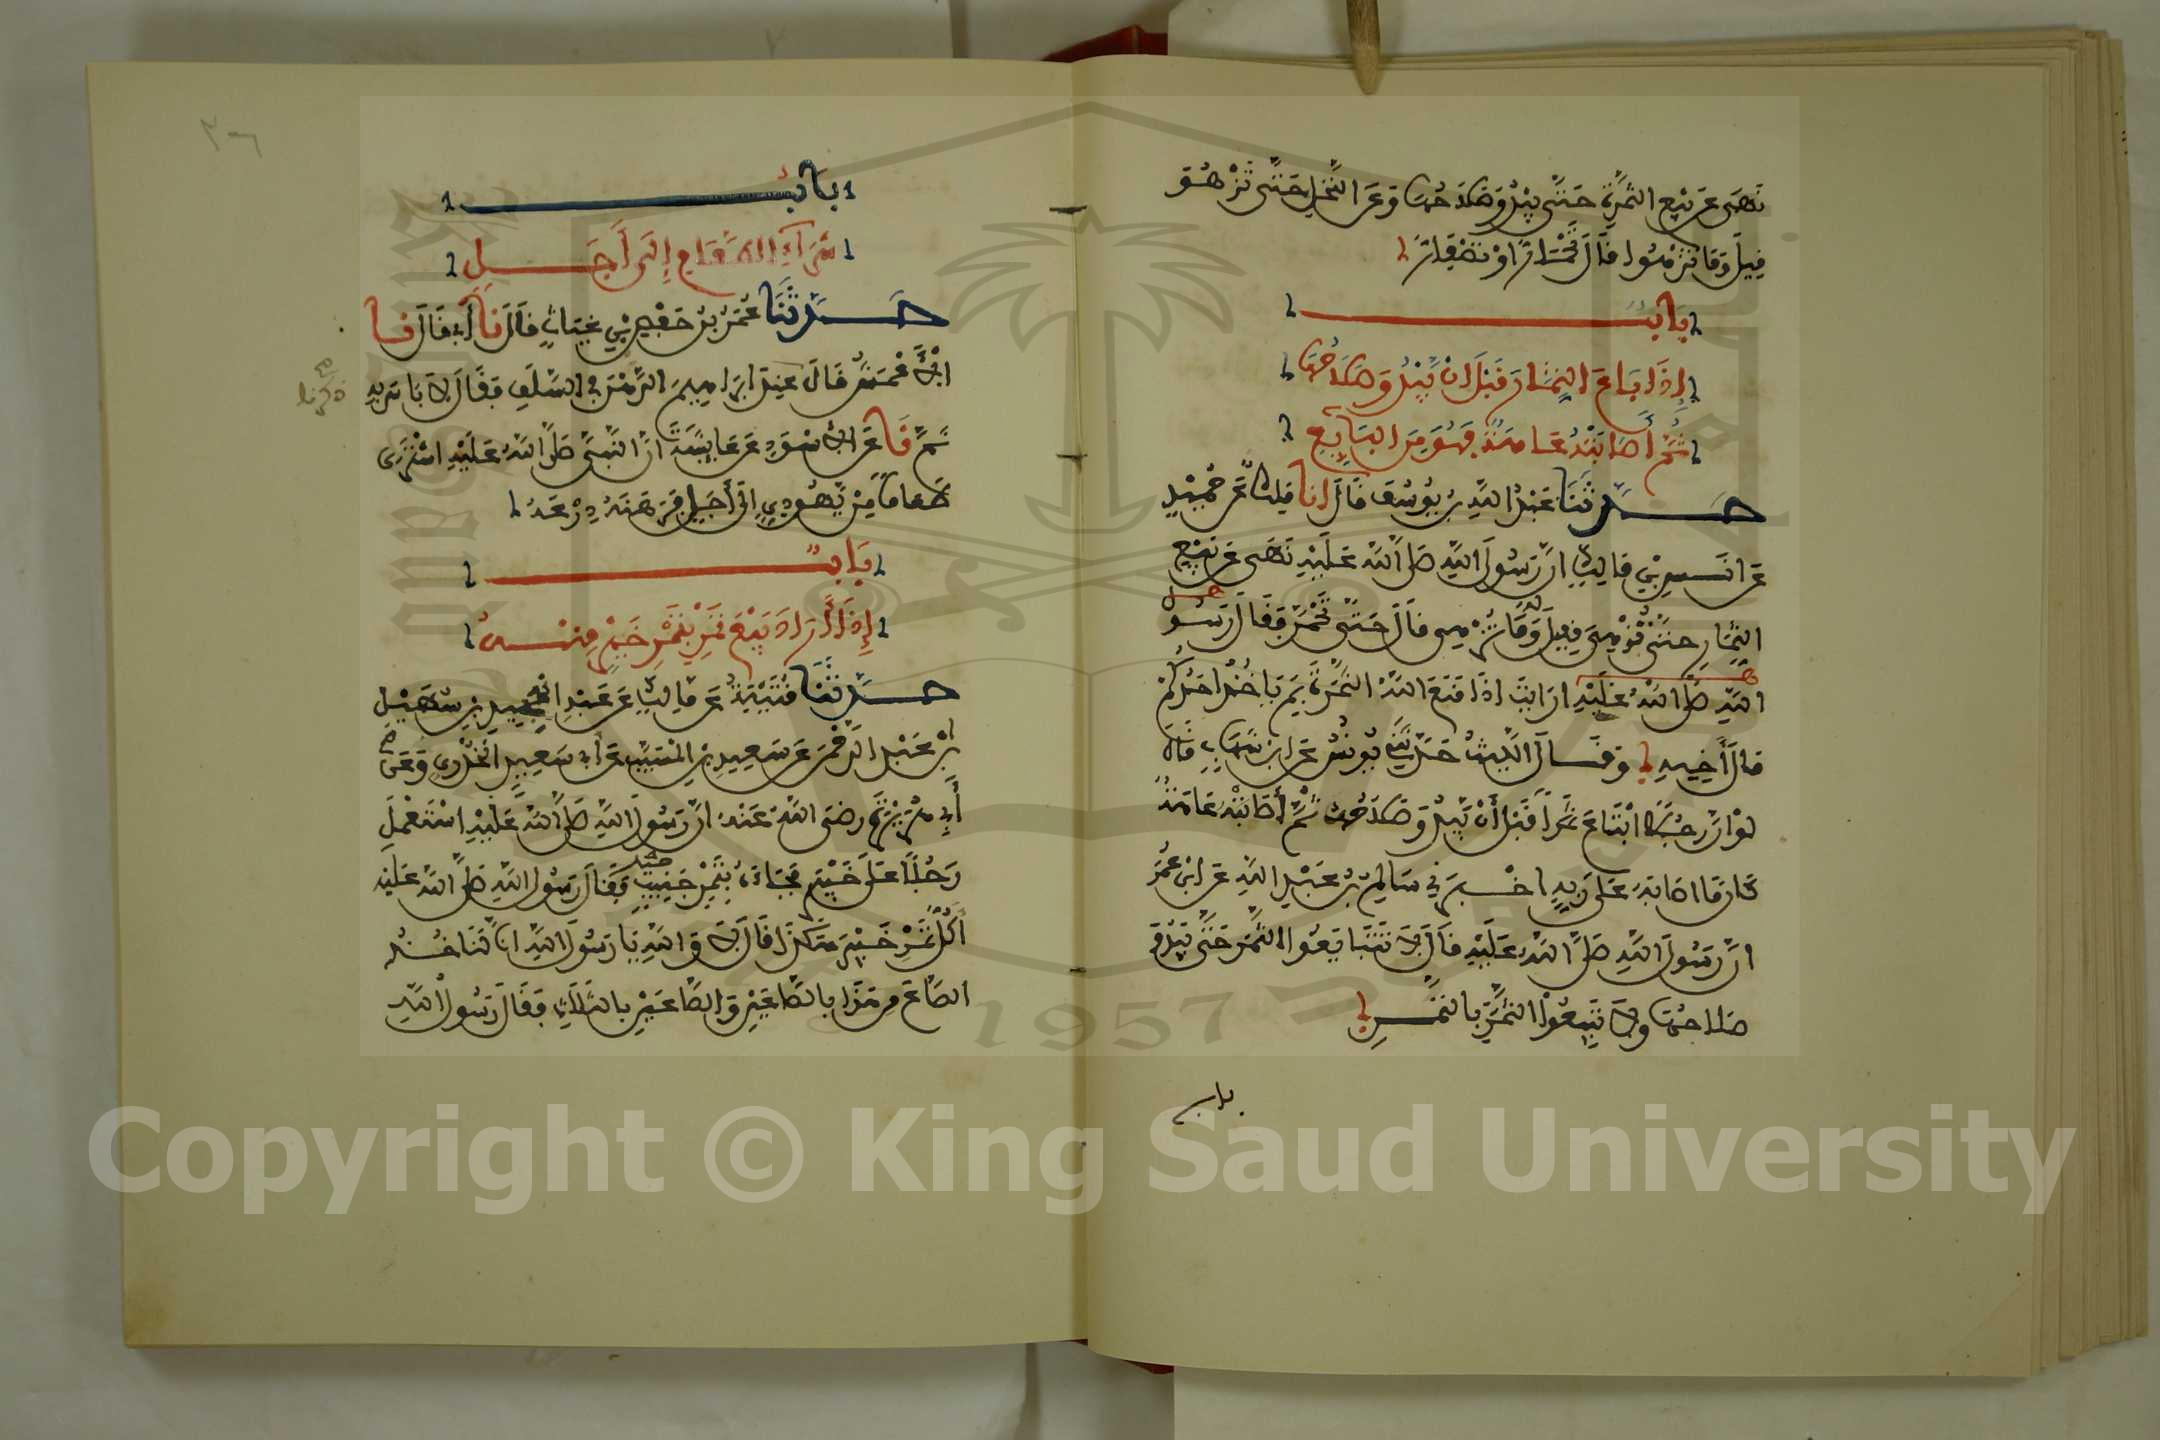 نهى عن بيع الثمرة حتى يبدو صلاحها وعن النخل حتى تزهو
قيل وما تزهو قال تحمار او تصفار
باب
إذا باع الثمار قبل ان يبدو صلاحها
ثم أصابته عاهة فهو من البايع
حدثنا عبد الله بن يوسف قال انا ملك عن حميد
عن انس بن مالك ان رسول الله صلى الله عليه نهى عن بيع
الثمار حتى تزهي فقيل وما تزهي قال حتى تحمر فقال رسول
الله صلى الله عليه ارايت اذا منع الله الثمرة بم ياخذ احدكم
مال أخيه وقال الليث حدثني يونس عن ابن شهاب قال
لو ان رجلا ابتاع ثمرا قبل أن يبدو صلاحه ثم أصابته عاهة
كان ما اصابه على ربه اخبرني سالم بن عبد الله عن ابن عمر
ان رسول الله صلى الله عليه قال لا تتبايعوا الثمر حتى يبدو
صلاحها ولا تبيعوا الثمر بالتمر
باب
باب
شراء الطعام إلى أجل
حدثنا عمر بن حفص بن غياث قال نا أبي قال نا
الأعمش قال عند ابراهيم الرهن في السلف فقال لا باس به
ثم نا عن الاسود عن عايشة ان النبي صلى الله عليه اشترى
طعاما من يهودي إلى أجل فرهنه درعه
باب
إذا أراد بيع تمر بتمر خير منه
حدثنا قتيبة عن مالك عن عبد المجيد بن سهيل
بن عبد الرحمن عن سعيد بن المسيب عن أبي سعيد الخدري وعن
أبي هريرة رضي الله عنه ان رسول الله صلى الله عليه استعمل
رجلا على خيبر فجاءه بتمر جنيب فقال رسول الله صلى الله عليه
أكل تمر خيبر هكذا قال لا والله يا رسول الله انا لنا خذ
الصاع من هذا بالصاعين والصاعين بالثلاث فقال رسول الله
Copyright © King Saud University
1957